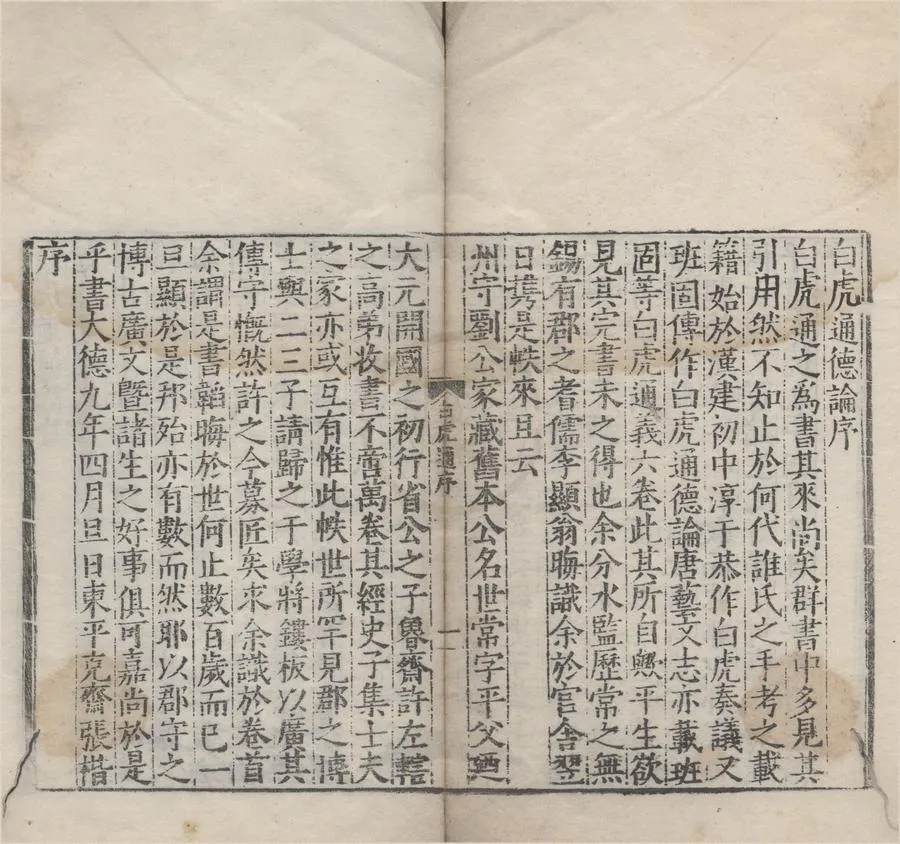 白虎通德論序
白虎通之爲書其來尚矣群書中多見其
引用然不知止於何代誰氏之手考之載
籍始於漢建初中淳于恭作白虎奏議又
班固傳作白虎通德論唐藝文志亦載班
固等白虎通義六卷此其所自歟平生欲
見其完書未之得也余分水監歷常之無
錫有郡之耆儒李顯翁晦識余於官舍翌
日携是帙來且云
州守劉公家藏舊本公名世常字平父迺
白虎通序
一
大元開國之初行省公之子魯齋許左轄
之高弟收書不啻萬卷其經史子集士夫
之家亦或互有惟此帙世所罕見郡之博
士與二三子請歸之于學將鏤板以廣其
傳守慨然許之今募匠矣求余識於卷首
余謂是書韜晦於世何止數百歲而已一
旦顯於是邦殆亦有數而然耶以郡守之
博古廣文曁諸生之好事俱可嘉尚於是
乎書大德九年四月旦日東平克齋張楷
序